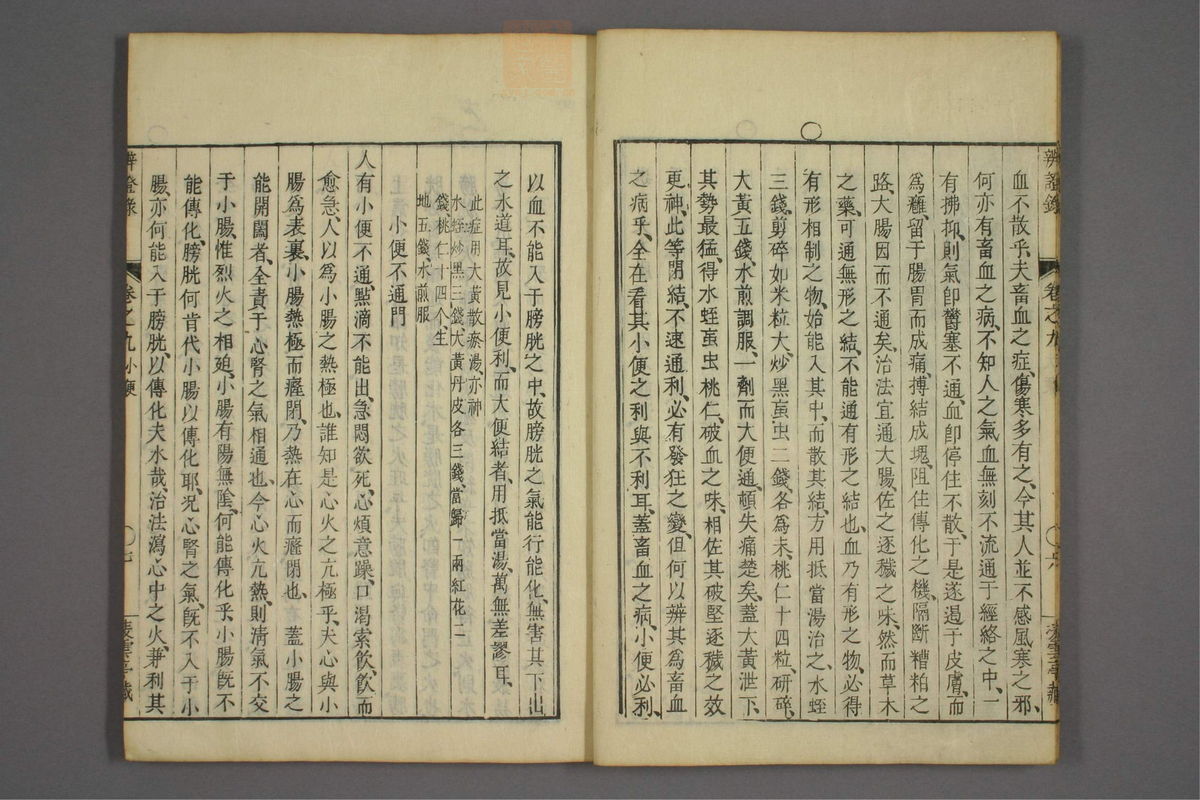 血不散乎、夫畜血之症、傷寒多有之、今其人並不感風寒之邪、
何亦有畜血之病、不知人之氣血無刻不流通于經絡之中、一
有拂抑、則氣卽鬱塞不通、血卽停住不散、于是遂遏于皮膚、而
為癰、留于腸胃而成痛、摶結成塊、阻住傳化之機、隔斷糟粕之
路、大腸因而不通矣、治法宜通大腸、佐之逐穢之味、然而草木
之藥、可通無形之結、不能通有形之結也、血乃有形之物、必得
有形相制之物、始能入其中、而散其結、方用抵當湯治之、水蛭
三錢、剪碎如米粒大、炒黑䖟虫二錢、各為末、桃仁十四粒、研碎、
大黃五錢、水煎調服、一劑而大便通、頓失痛楚矣、蓋大黃泄下、
其勢最猛、得水蛭䖟虫桃仁、破血之味、相佐其破堅逐穢之效
更神、此等閉結、不速通利、必有發狂之變、但何以辨其為畜血
之病乎、全在看其小便之利與不利耳、蓋畜血之病、小便必利、
辨證錄
卷之九
六
以血不能入于膀胱之中、故膀胱之氣能行能化、無害其下出
之水道耳、故見小便利、而大便結者、用抵當湯、萬無差謬耳、
此症用大黃散瘀湯、亦神
水蛭炒黑三錢、大黃丹皮各三錢、當歸一兩紅花二
錢桃仁十四个、生
地五錢、水煎服
小便不通門
人有小便不通點滴不能出、急悶欲死、心煩意躁、口渴索飲、飲而
愈急、人以為小腸之熱極也、誰知是心火之亢極乎、夫心與小
腸為表裏、小腸熱極而癃閉、乃熱在心而癃閉也、蓋小腸之
能開闔者、全責于心腎之氣相通也、今心火亢熱、則清氣不交
于小腸、惟烈火之相廹、小腸有陽無陰、何能傳化乎、小腸旣不
能傳化、膀胱何肯代小腸以傳化耶、況心腎之氣、旣不入于小
腸、亦何能入于膀胱、以傳化夫水哉、治法瀉心中之火、兼利其
辨證錄
卷之九 小便
七